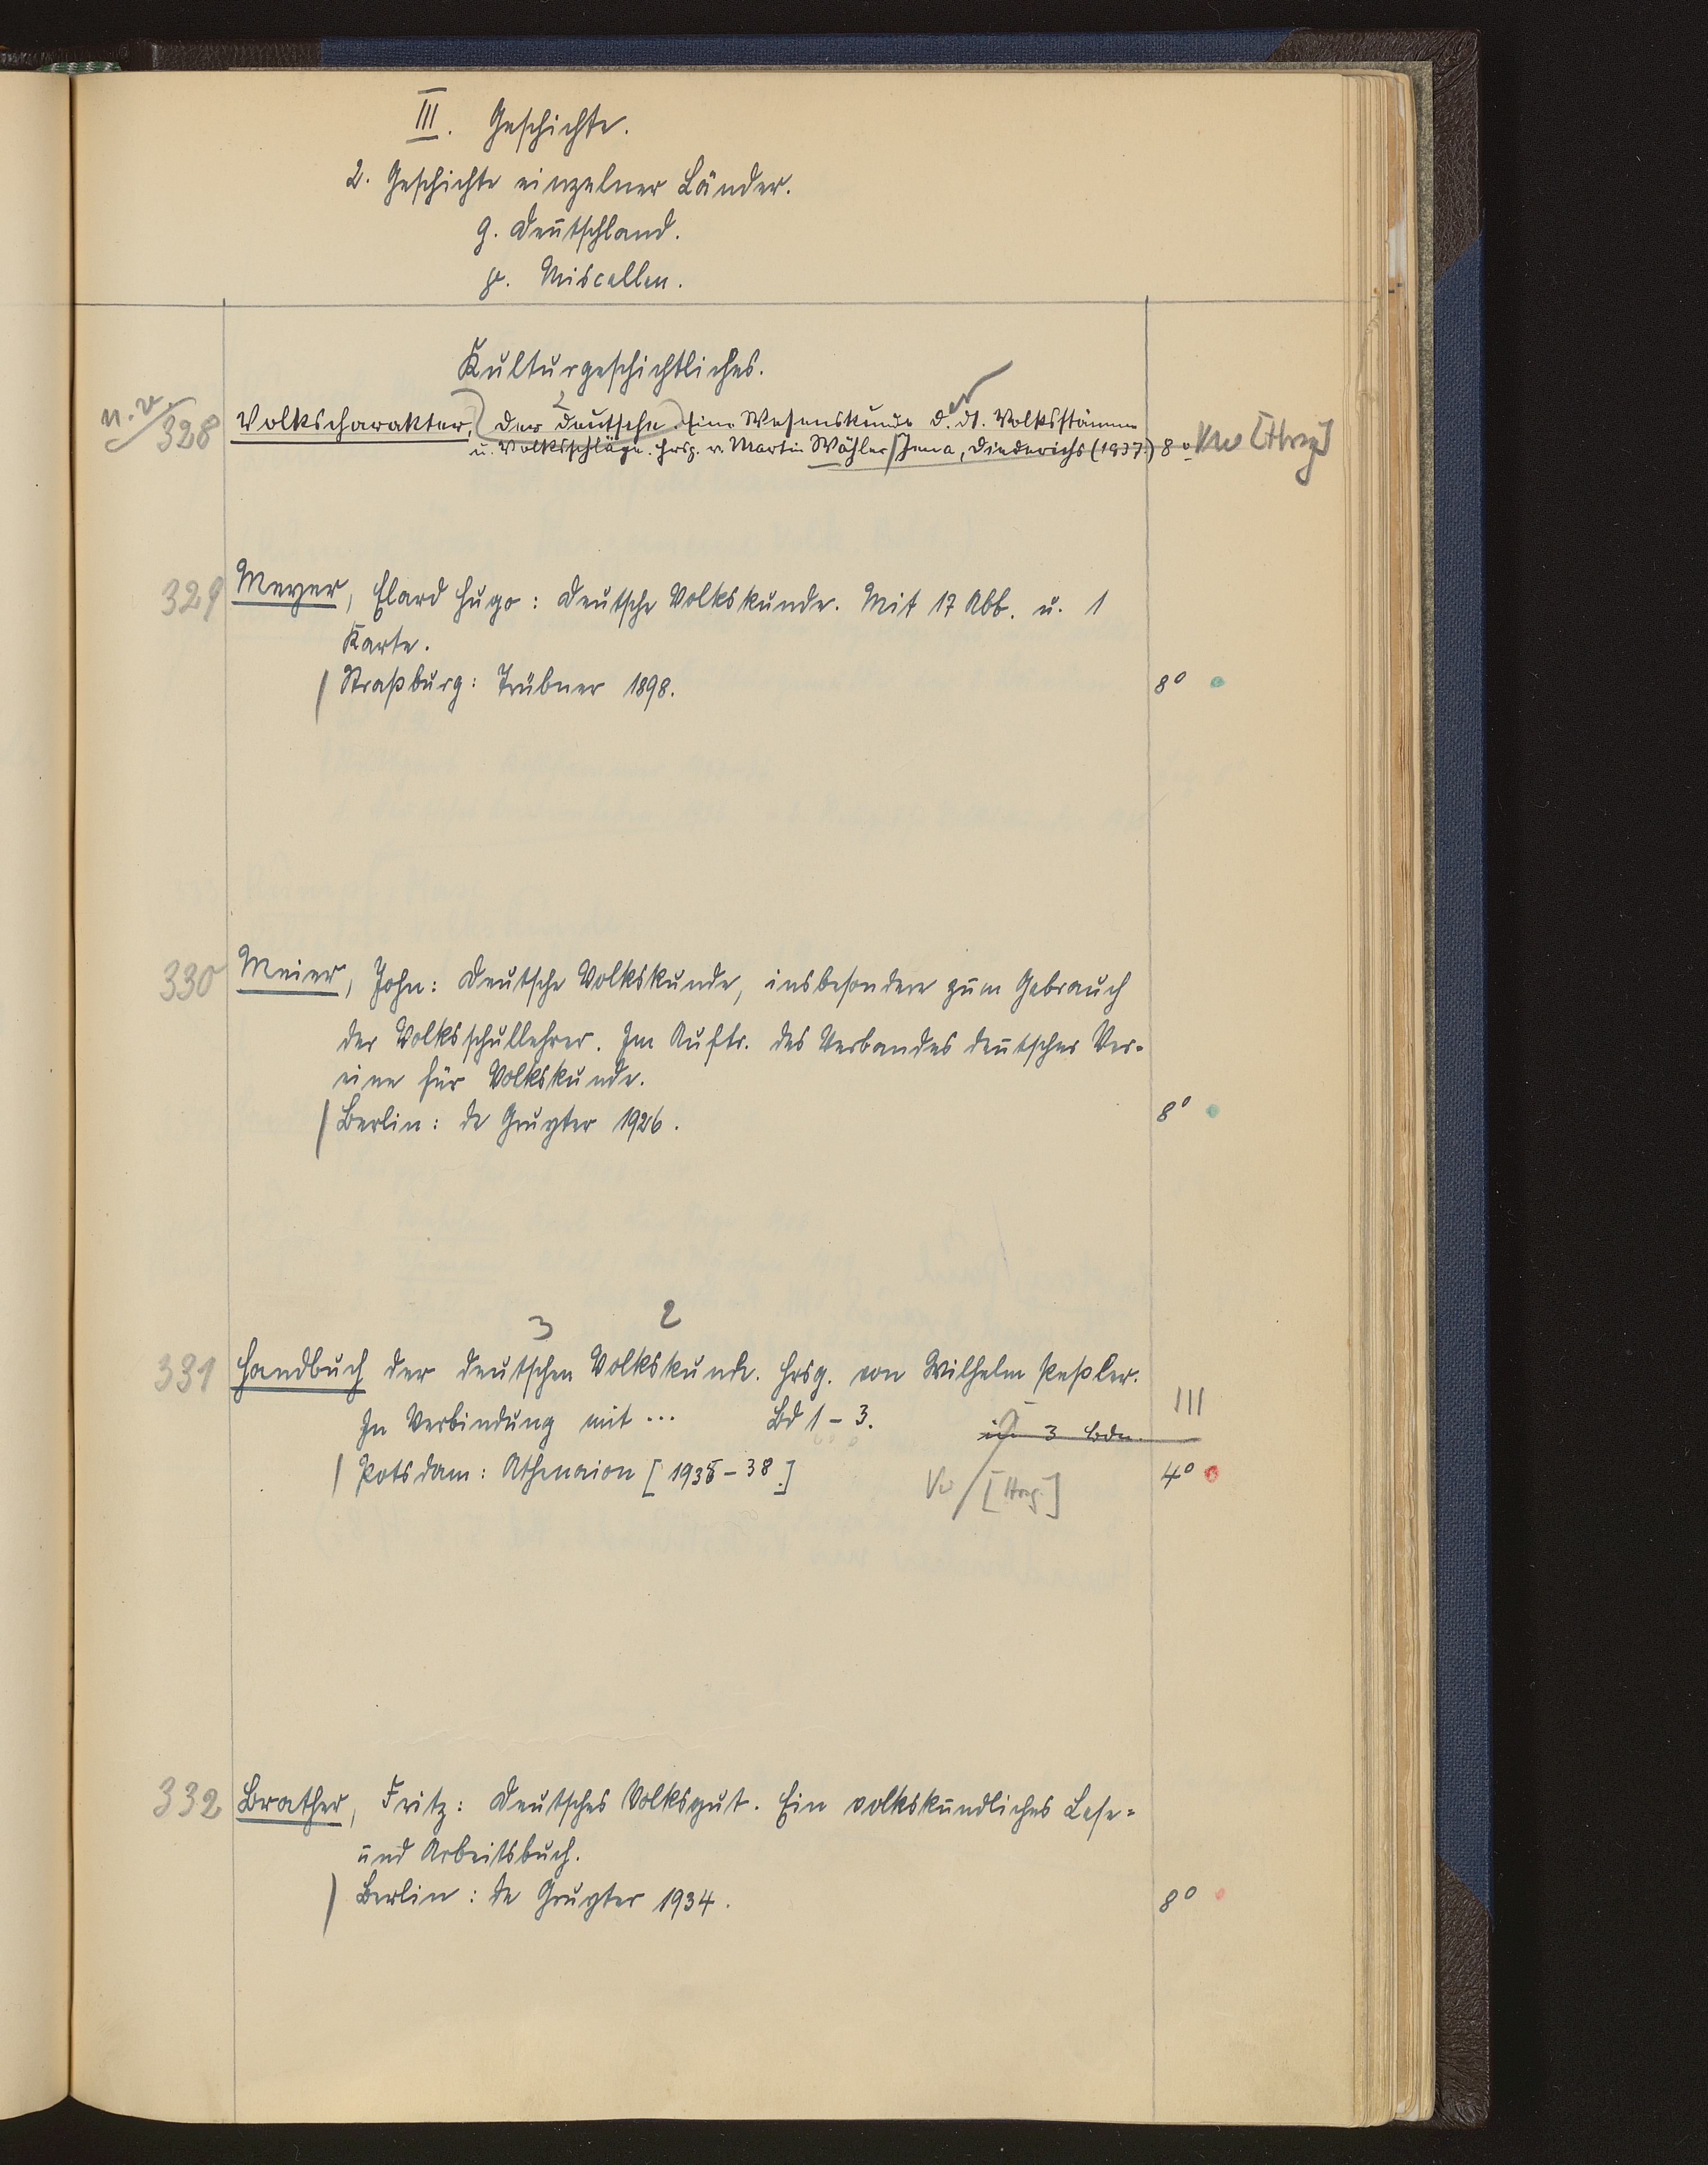 III. Geschichte.
2. Geschichte einzelner Länder.
g. Deutschland.
Miscellen.
Kulturgeschichtliches.
n. v. 328 Volkscharakter, Der Deutsche. Eine Wesenskunde d. dt. Volksstämme
u. Volksschläge. Hrsg. v. Martin Wähler / Jena, Diederichs (1937.) 8° [Hrsg]
329 Meyer, Elard Hugo: Deutsche Volkskunde. Mit 17 Abb. u. 1
Karte.
/ Straßburg: Trübner 1898. 8°
330 Meier, John: Deutsche Volkskunde, insbesondere zum Gebrauch
der Volksschullehrer. Im Auftr. des Verbandes deutscher Ver-
eine für Volkskunde.
/ Berlin: de Gruyter 1926. 8°
3 2
331 Handbuch der deutschen Volkskunde. Hrsg. von Wilhelm Peßler.
In Verbindung mit ... Bd 1-3. in 3 Bdn. III
/ Potsdam: Athenaion [1935-38.] [Hrsg.] 4°
332 Brather, Fritz: Deutsches Volksgut. Ein volkskundliches Lese-
und Arbeitsbuch.
/ Berlin: de Gruyter 1934. 8°